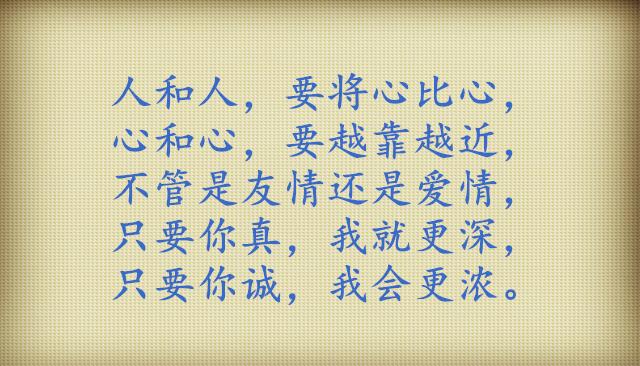 人和人，要将心比心，
心和心，要越靠越近，
不管是友情还是爱情，
只要你真，我就更深，
只要你诚，我会更浓。